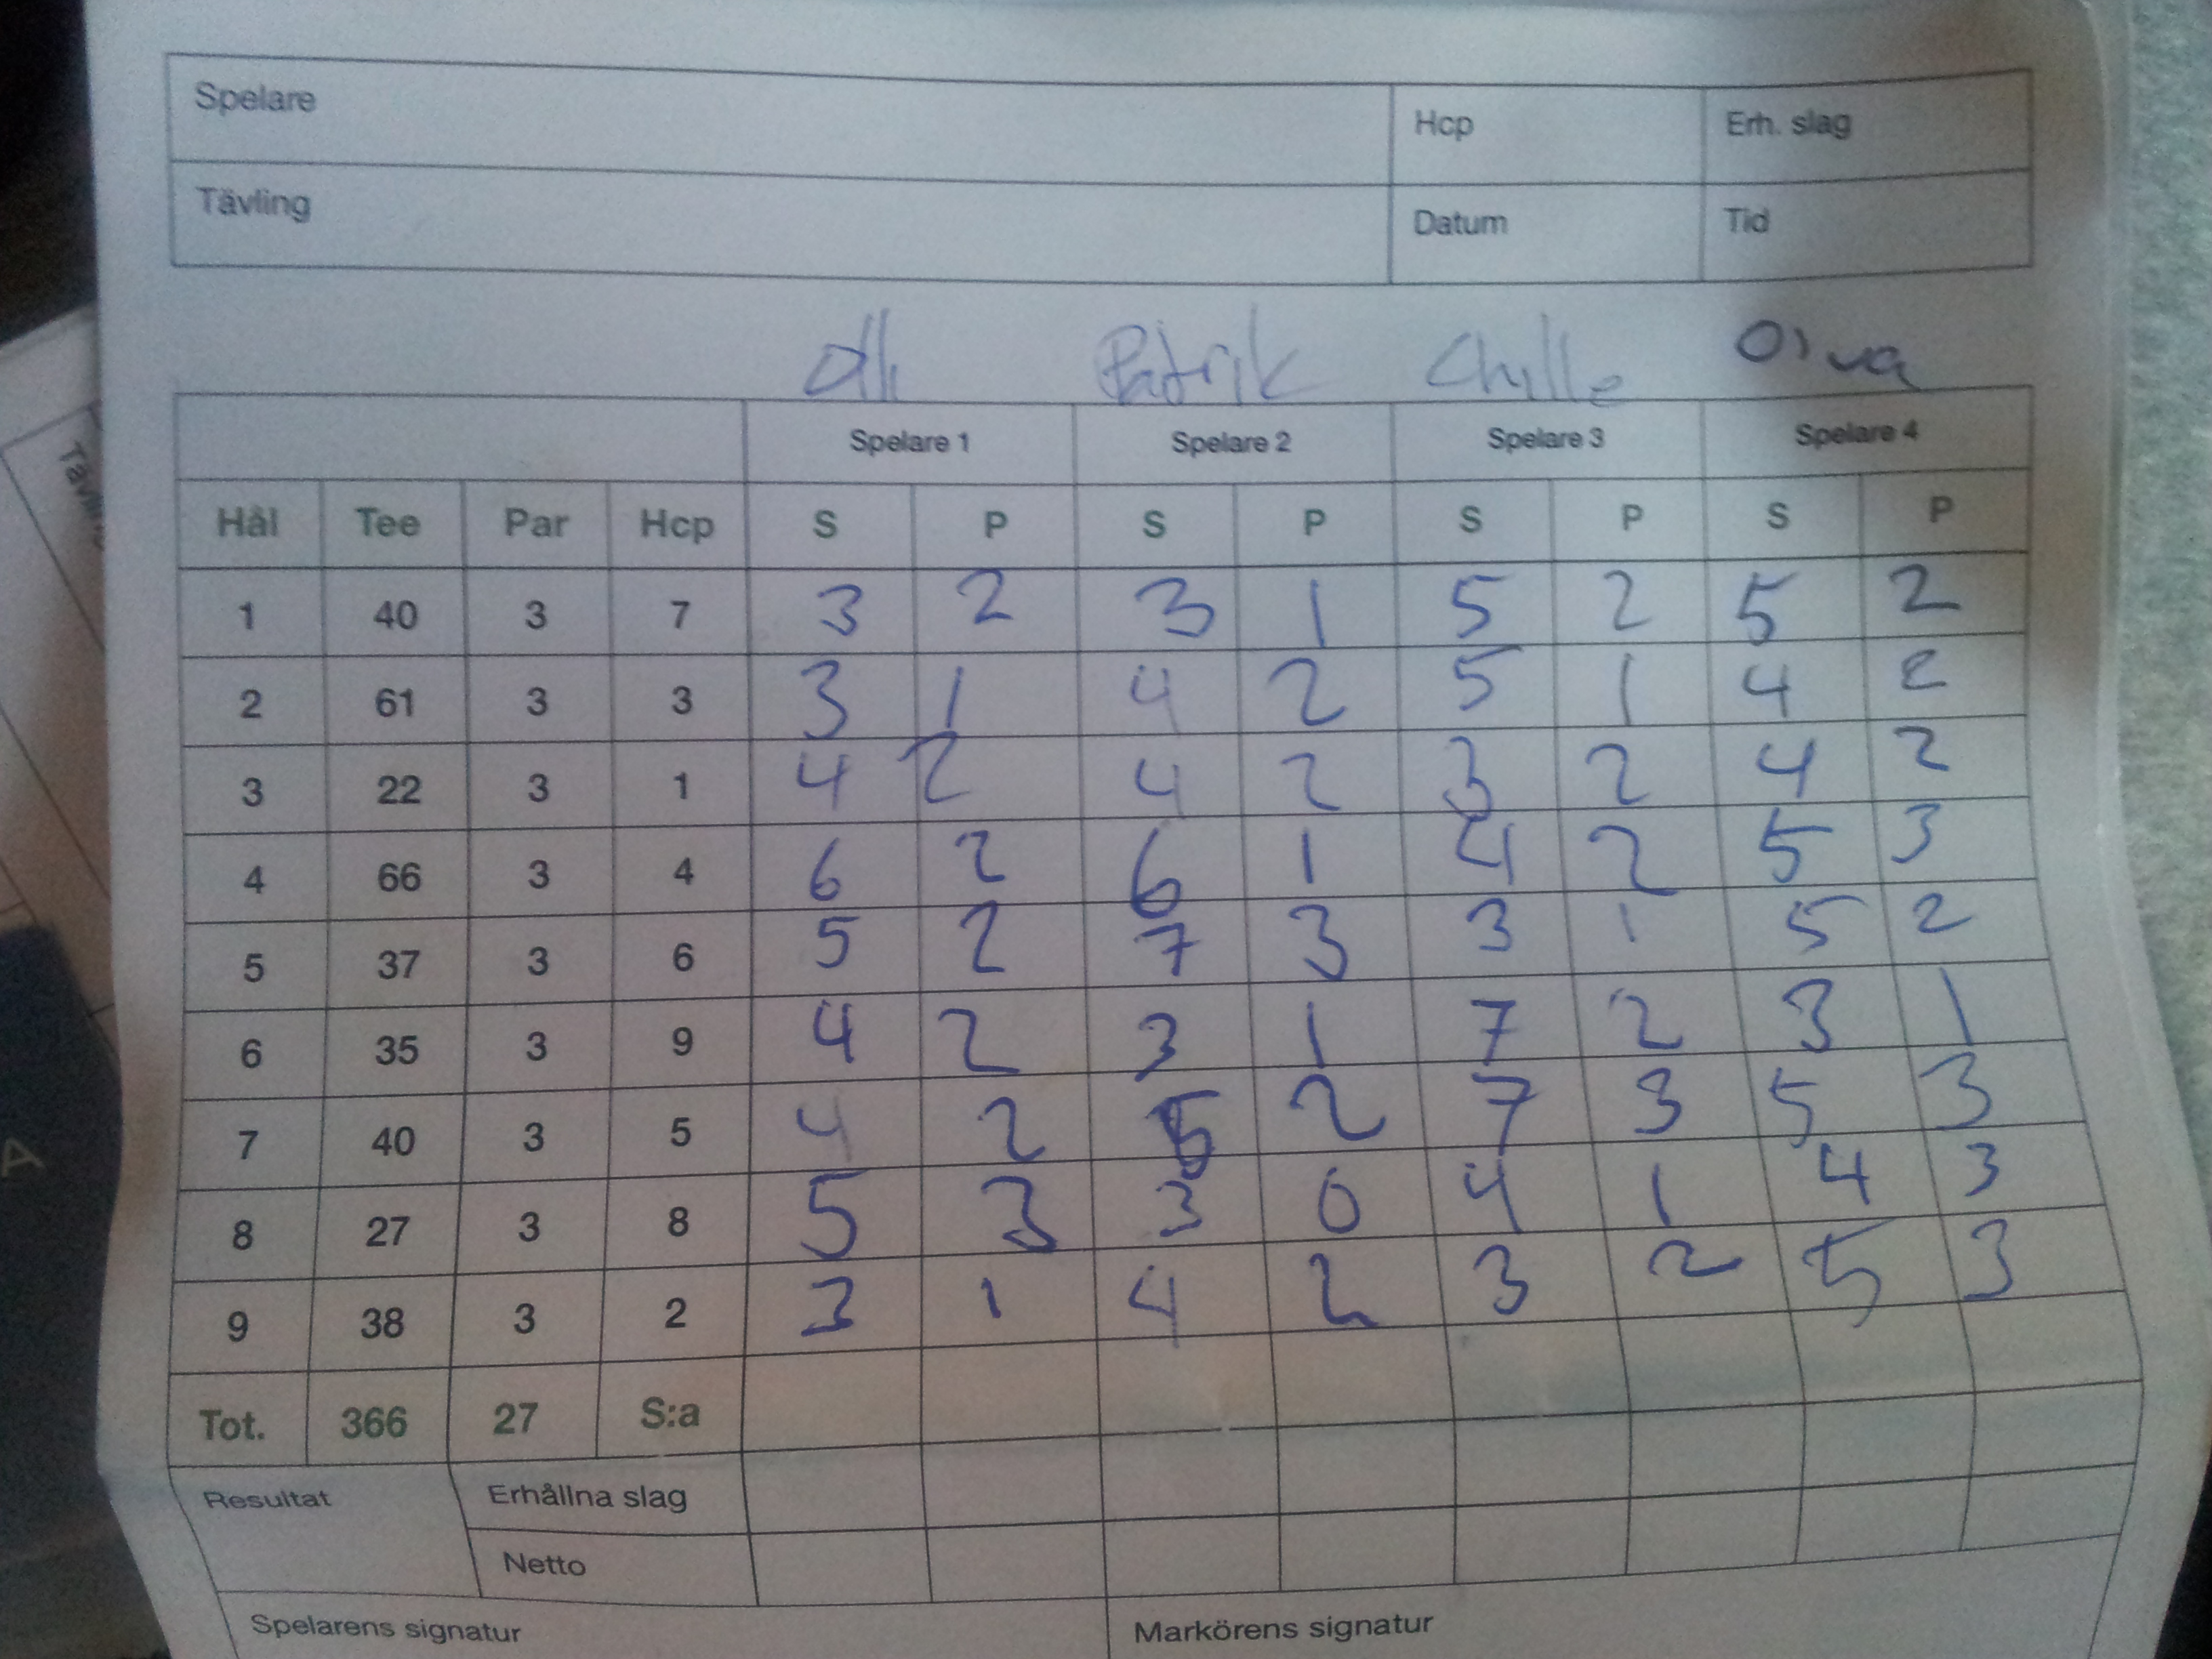 Spelare Hcp Erh. slag
Tävling Datum Tid
Patrik Chille
Spelare 1 Spelare 2 Spelare 3 Spelare 4
Hål Tee Par Hcp S P S P S P S P
1 40 3 7 3 2 3 1 5 2 5 2
2 61 3 3 3 1 4 2 5 1 4 2
3 22 3 1 4 2 4 2 3 2 4 2
4 66 3 4 6 2 6 1 4 2 5 3
5 37 3 6 5 2 7 3 3 1 5 2
6 35 3 9 4 2 3 1 7 2 3 1
7 40 3 5 4 2 2 7 3 5 3
8 27 3 8 5 3 3 0 4 1 4 3
9 38 3 2 3 1 4 2 3 2 5 3
Tot. 366 27 S:a
Resultat Erhållna slag
Netto
Spelarens signatur Markörens signatur